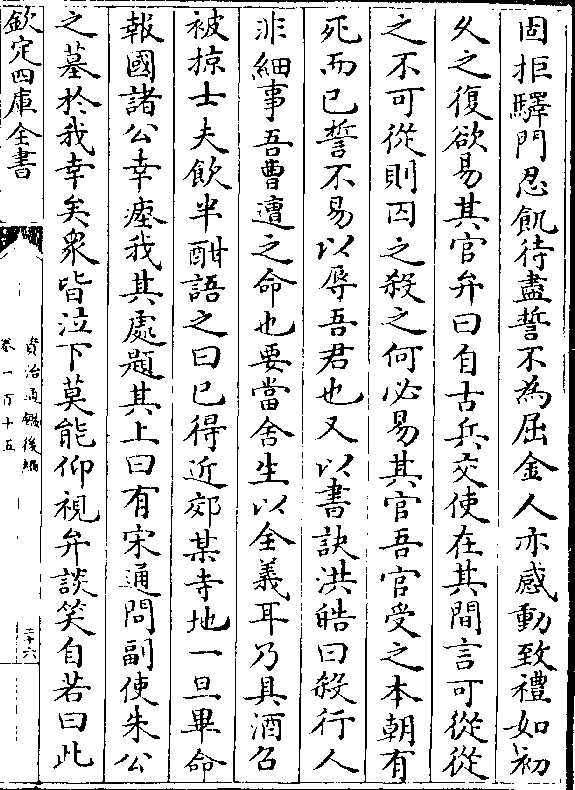 固拒驛門忍飢待盡誓不為屈金人亦感動致禮如初
久之復欲易其官弁曰自古兵交使在其間言可從從
之不可從則囚之殺之何必易其官吾官受之本朝有
死而已誓不易以辱吾君也又以書訣洪皓曰殺行人
非細事吾曹遭之命也要當舍生以全義耳乃具酒召
被掠士夫飲半酣語之曰已得近郊某寺地一旦畢命
報國諸公幸瘞我其處題其上曰有宋通問副使朱公
之墓於我幸矣衆皆泣下莫能仰視弁談笑自若曰此
欽定四庫全書
資治通鑑後編
卷一百十五
二十六